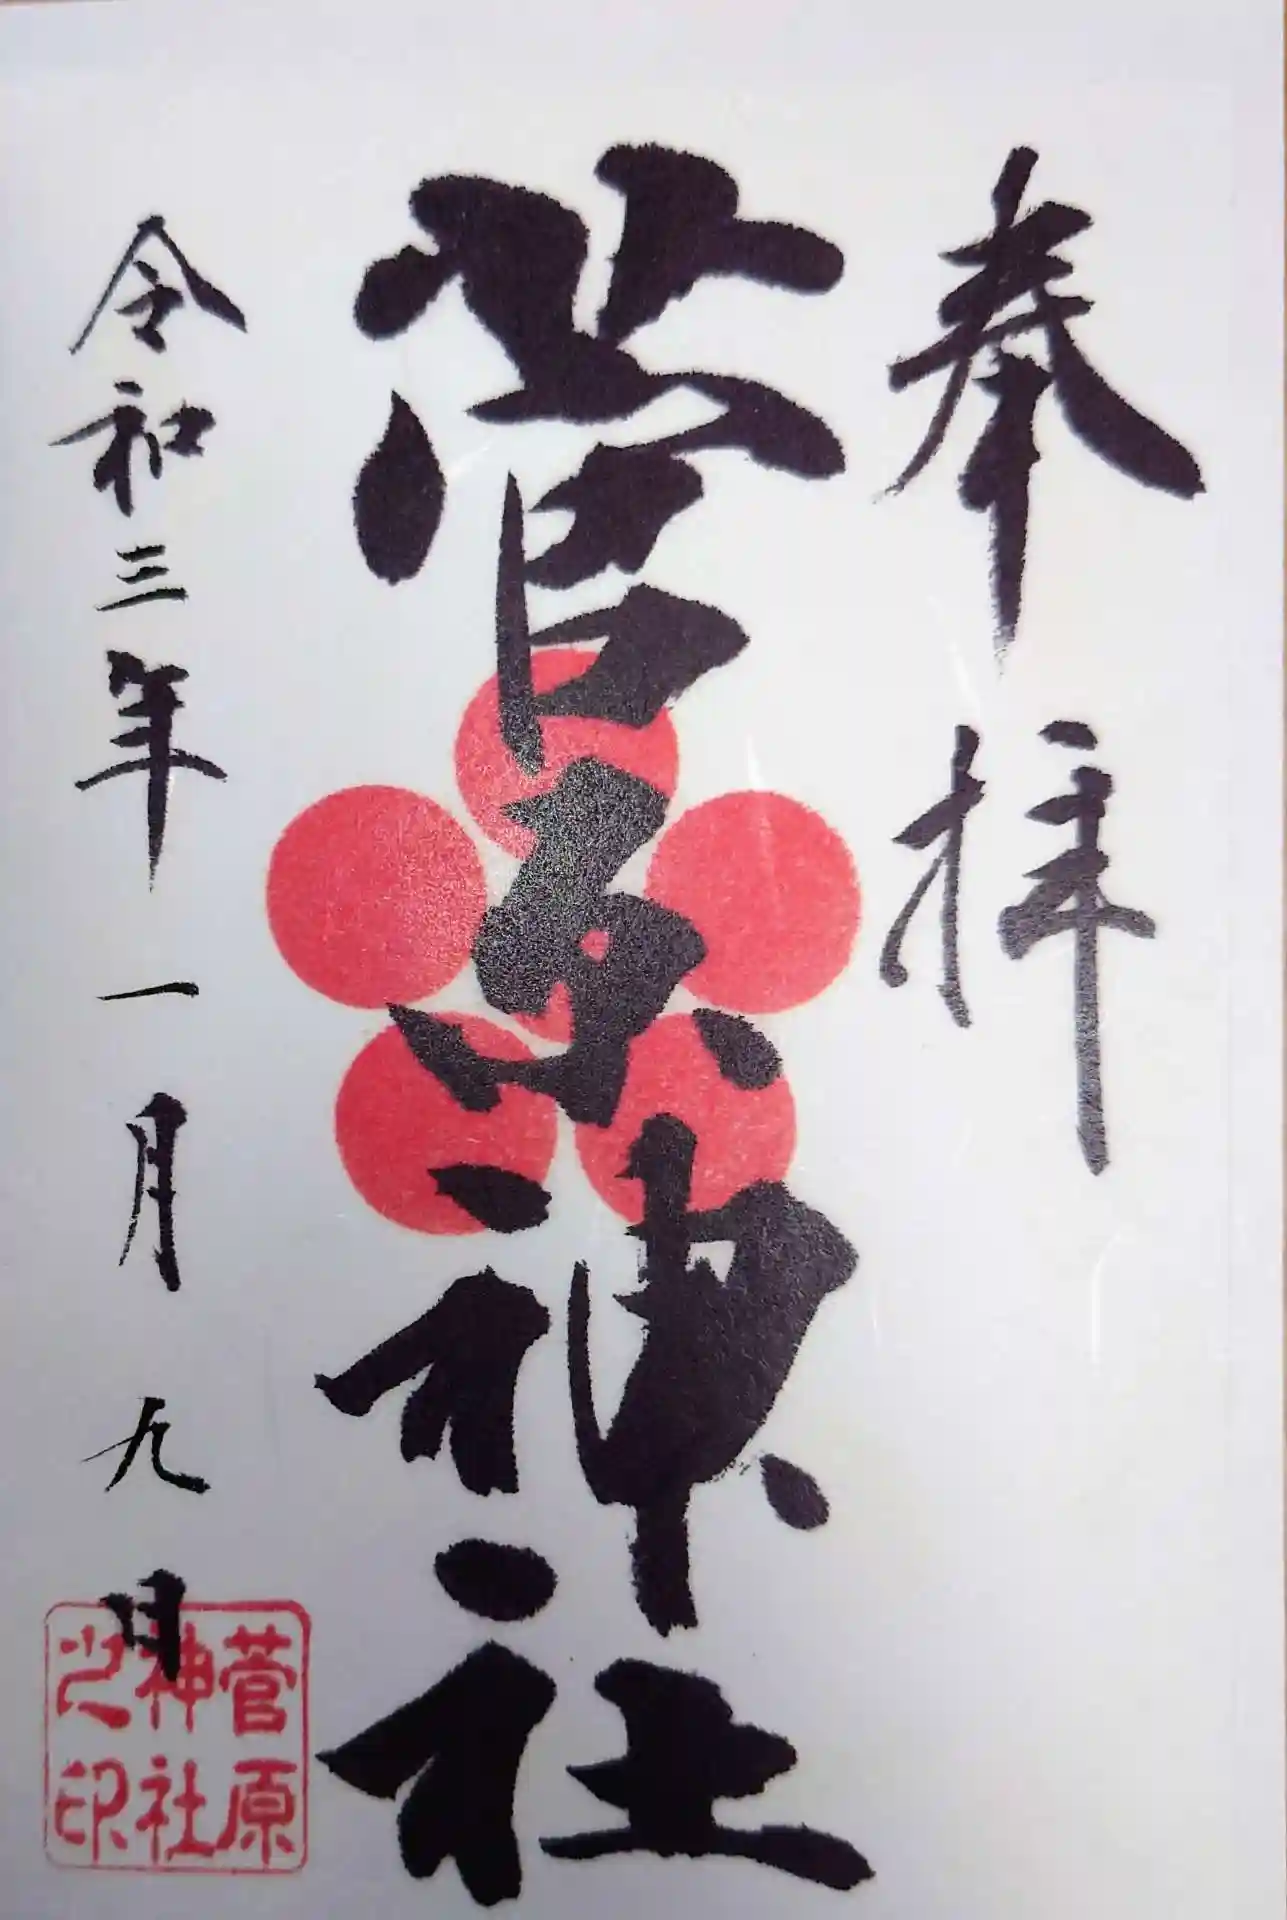 奉拝
菅原神社
令和三年一月九日
菅原
神社
之印